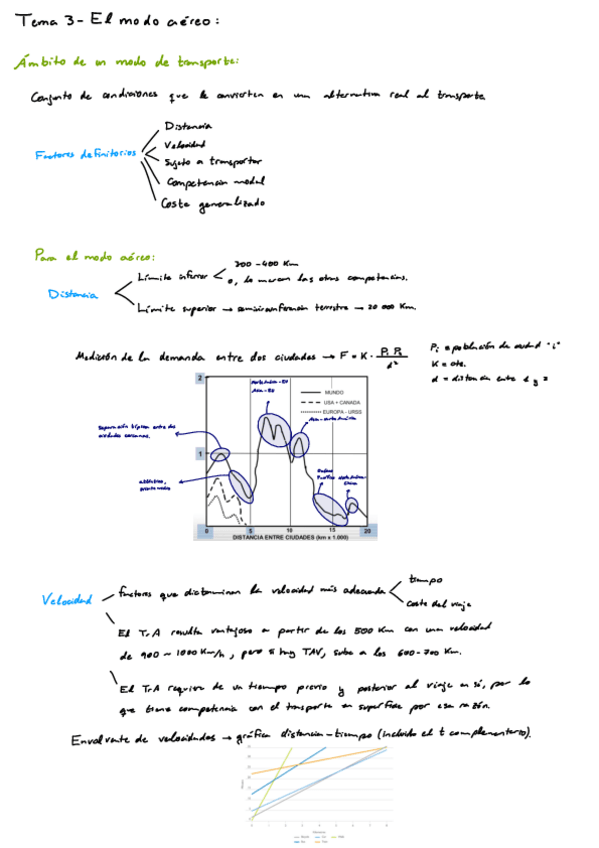 Tema 3 - El modo aéreo:
Ámbito de un modo de transporte:
Conjunto de condiciones que le convierten en una alternativa real al transporte
Factores definitorios
Distancia
Velocidad
Sujeto a transportar
Competencia modal
Coste generalizado
Para el modo aéreo:
Distancia
Límite inferior
300 - 400 Km
o, lo marcan las otras competencias.
Límite superior → semicircunferencia terrestre → 20 000 Km.
Medición de la demanda entre dos ciudades → F = K · P₁ P₂ / d²
Pᵢ = población de ciudad "i"
K = cte.
d = distancia entre 1 y 2
2
1
0 5 10 15 20
MUNDO
USA + CANADA
EUROPA - URSS
Separación típica entre dos
ciudades cercanas.
DISTANCIA ENTRE CIUDADES (km x 1.000)
Velocidad
factores que dictaminan la velocidad más adecuada
tiempo
coste del viaje
El TrA resulta ventajoso a partir de los 500 Km con una velocidad
de 900 ~ 1000 Km/h, pero si hay TAV, sube a los 600-700 Km.
El TrA requiere de un tiempo previo y posterior al viaje en sí, por lo
que tiene competencia con el transporte en superficie por esa razón.
Envolvente de velocidades → gráfica distancia - tiempo (incluido el t complementario).